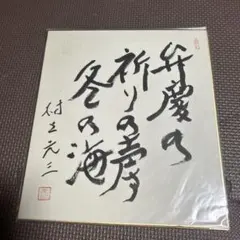 弁慶の
祈りの声
冬の海
村上元三